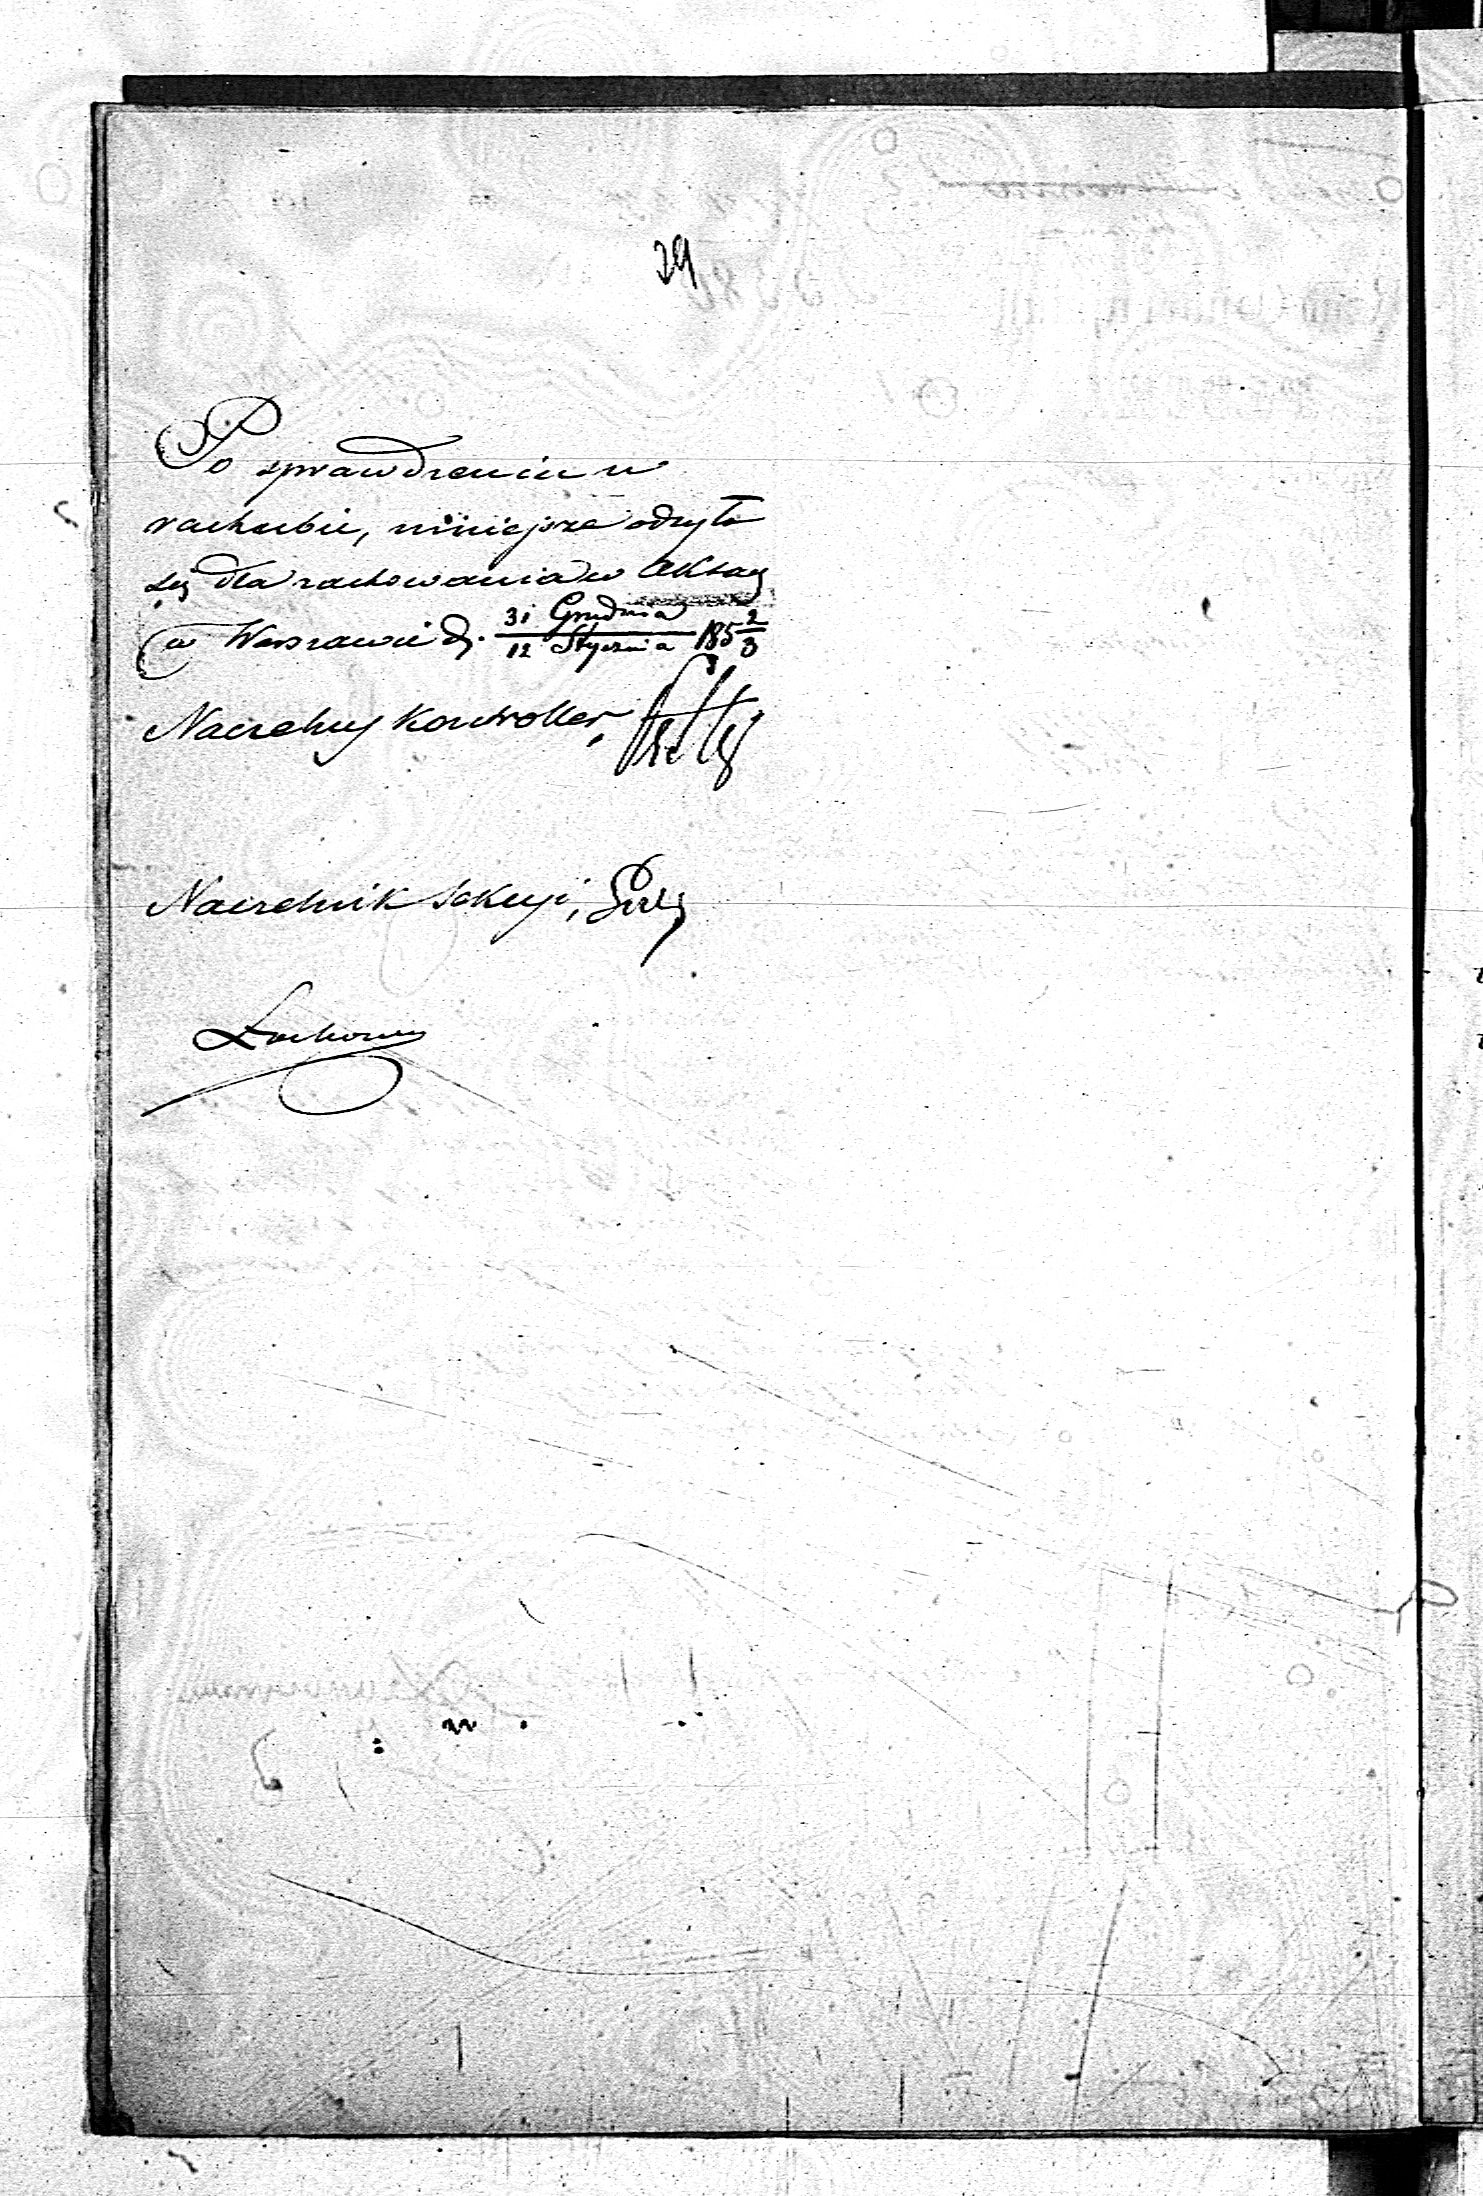 29
Po sprawdzeniu w
rachubie, niniejsze odsyła
się dla zachowania w Aktach
w Warszawie d. 31 Grudnia / 12 Stycznia 185 2/3
Naczelny Kontroller,
Naczelnik Sekcyi,